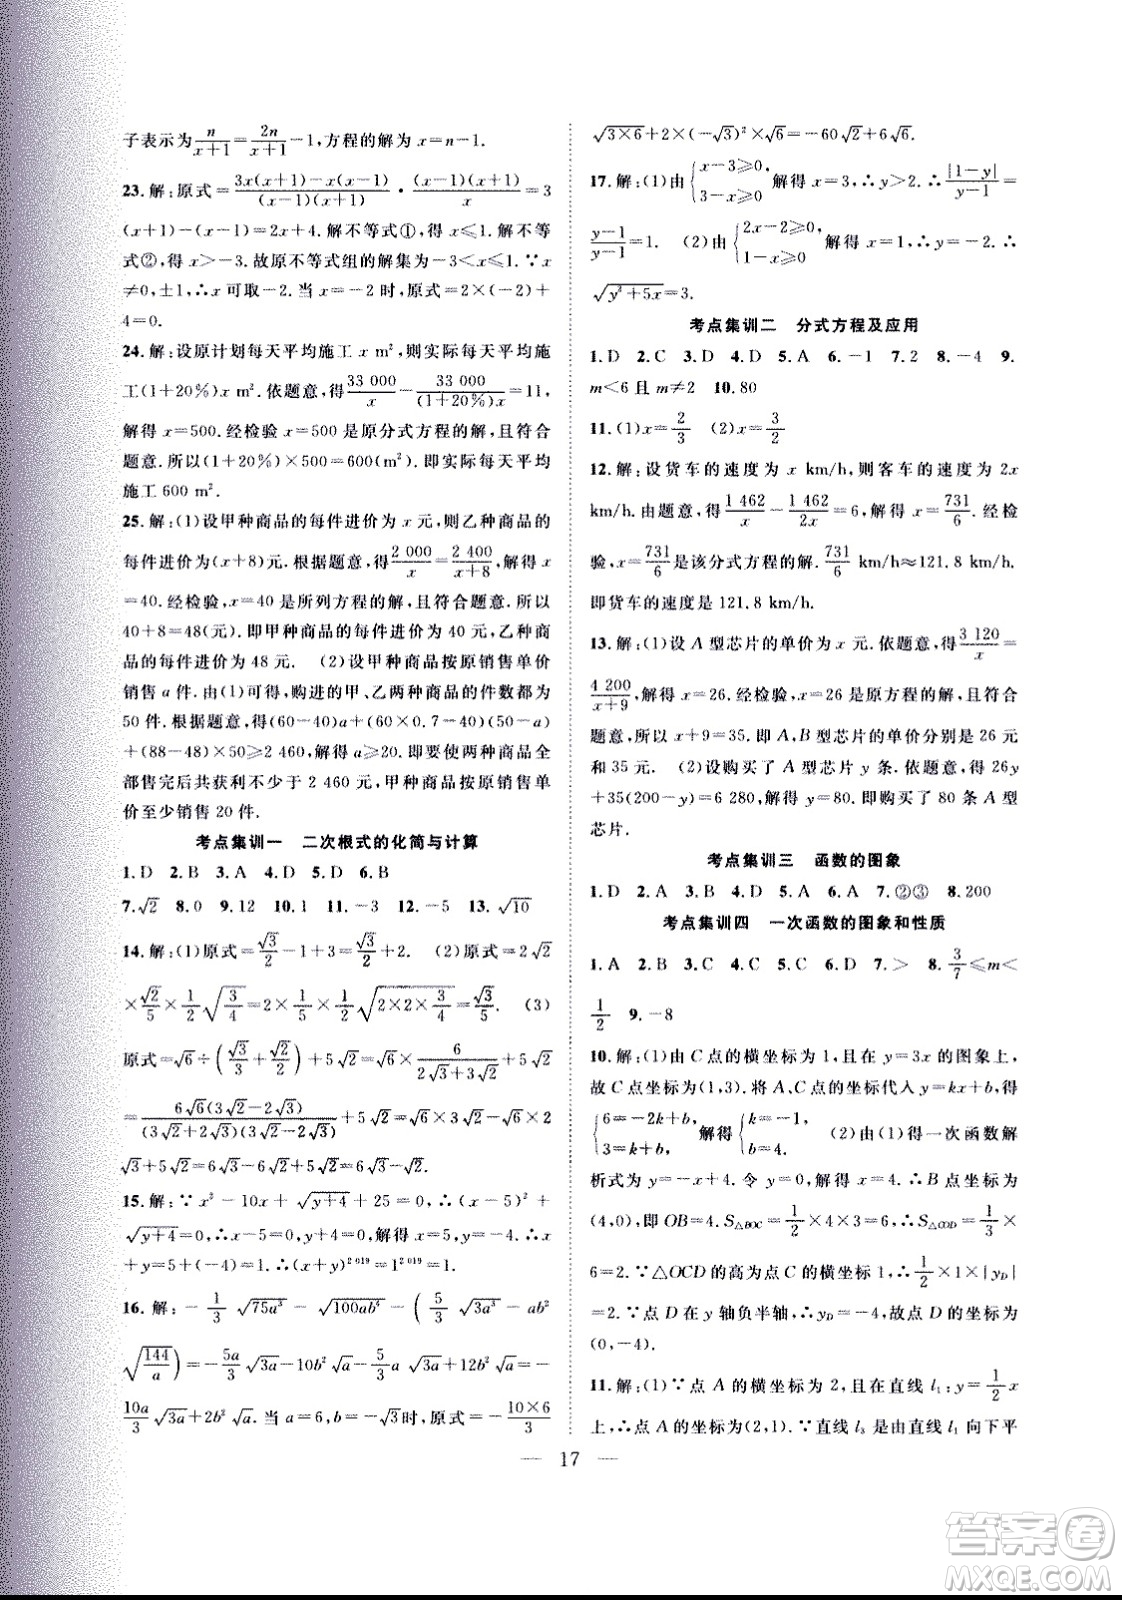 子表示为 n/(x+1)=2n/(x+1)−1,方程的解为 x=n−1.
23.解:原式=[3x(x+1)−x(x−1)]/[(x−1)(x+1)]·[(x−1)(x+1)]/x=3
(x+1)−(x−1)=2x+4.解不等式①,得 x≤1.解不等
式②,得 x>−3.故原不等式组的解集为−3<x≤1.∵x
≠0,±1,∴x 可取−2.当 x=−2时,原式=2×(−2)+
4=0.
24.解:设原计划每天平均施工 x m²,则实际每天平均施
工(1+20%)x m².依题意,得 33 000/x−33 000/[(1+20%)x]=11,
解得 x=500.经检验 x=500 是原分式方程的解,且符合
题意.所以(1+20%)×500=600(m²).即实际每天平均
施工 600 m².
25.解:(1)设甲种商品的每件进价为 x 元,则乙种商品的
每件进价为(x+8)元.根据题意,得 2 000/x=2 400/(x+8),解得 x
=40.经检验,x=40 是所列方程的解,且符合题意.所以
40+8=48(元).即甲种商品的每件进价为 40 元,乙种商
品的每件进价为 48 元. (2)设甲种商品按原销售单价
销售 a 件.由(1)可得,购进的甲、乙两种商品的件数都为
50 件.根据题意,得(60−40)a+(60×0.7−40)(50−a)
+(88−48)×50≥2 460,解得 a≥20.即要使两种商品全
部售完后共获利不少于 2 460 元,甲种商品按原销售单
价至少销售 20 件.
考点集训一 二次根式的化简与计算
1.D 2.B 3.A 4.D 5.D 6.B
7.√2 8.0 9.12 10.1 11.−3 12.−5 13.√10
14.解:(1)原式=√3/2−1+√3/2+2. (2)原式=2√2
×√2/5×1/2√(3/4)=2×1/5×1/2√(2×2×3/4)=√3/5. (3)
原式=√6÷(√3/3+√2/2)+5√2=√6×6/(2√3+3√2)+5√2
=6√6(3√2−2√3)/[(3√2+2√3)(3√2−2√3)]+5√2=√6×3√2−√6×2
√3+5√2=6√3−6√2+5√2=6√3−√2.
15.解:∵x²−10x+√(y+4)+25=0,∴(x−5)²+
√(y+4)=0,∴x−5=0,y+4=0,解得 x=5,y=−4.∴x
+y=5+(−4)=1.∴(x+y)^2 019=1^2 019=1.
16.解:−1/3√(75a³)−√(100ab⁴)−(5/3√(3a³)−ab²
√(144/a))=−5a/3√3a−10b²√a−5/3a√3a+12b²√a=−
10a/3√3a+2b²√a.当 a=6,b=−√3时,原式=−(10×6)/3
√(3×6)+2×(−√3)²×√6=−60√2+6√6.
17.解:(1)由{x−3≥0,3−x≥0}解得 x=3,∴y>2.∴|1−y|/(y−1)=
(y−1)/(y−1)=1. (2)由{2x−2≥0,1−x≥0}解得 x=1,∴y=−2.∴
√(y²+5x)=3.
考点集训二 分式方程及应用
1.D 2.C 3.D 4.D 5.A 6.−1 7.2 8.−4 9.
m<6 且 m≠2 10.80
11.(1)x=2/3 (2)x=3/2
12.解:设货车的速度为 x km/h,则客车的速度为 2x
km/h.由题意,得 1 462/x−1 462/2x=6,解得 x=731/6.经检
验,x=731/6是该分式方程的解.731/6 km/h≈121.8 km/h.
即货车的速度是 121.8 km/h.
13.解:(1)设 A 型芯片的单价为 x 元.依题意,得 3 120/x=
4 200/(x+9),解得 x=26.经检验,x=26 是原方程的解,且符合
题意,所以 x+9=35.即 A,B 型芯片的单价分别是 26 元
和 35 元. (2)设购买了 A 型芯片 y 条.依题意,得 26y
+35(200−y)=6 280,解得 y=80.即购买了 80 条 A 型
芯片.
考点集训三 函数的图象
1.D 2.A 3.B 4.D 5.A 6.A 7.②③ 8.200
考点集训四 一次函数的图象和性质
1.A 2.B 3.C 4.A 5.C 6.D 7.> 8.3/7≤m<
1/2 9.−8
10.解:(1)由 C 点的横坐标为 1,且在 y=3x 的图象上,
故 C 点坐标为(1,3).将 A、C 点的坐标代入 y=kx+b,得
{6=−2k+b,3=k+b,解得{k=−1,b=4. (2)由(1)得一次函数解
析式为 y=−x+4,当 y=0,得−x+4=0,x=4,∴B 点坐标为
(4,0),即 OB=4.S△BOC=1/2×4×3=6,∴S△COD=1/3×
6=2.∵△OCD 的高为点 C 的横坐标 1,∴1/2×1×|yD|
=2.∵点 D 在 y 轴负半轴,∴yD=−4,故点 D 的坐标为
(0,−4).
11.解:(1)∵点 A 的横坐标为 2,且在直线 l₁:y=1/2x
上,∴点 A 的坐标为(2,1).∵直线 l₃ 是由直线 l₁ 向下平
17
答案卷
MXQE.COM